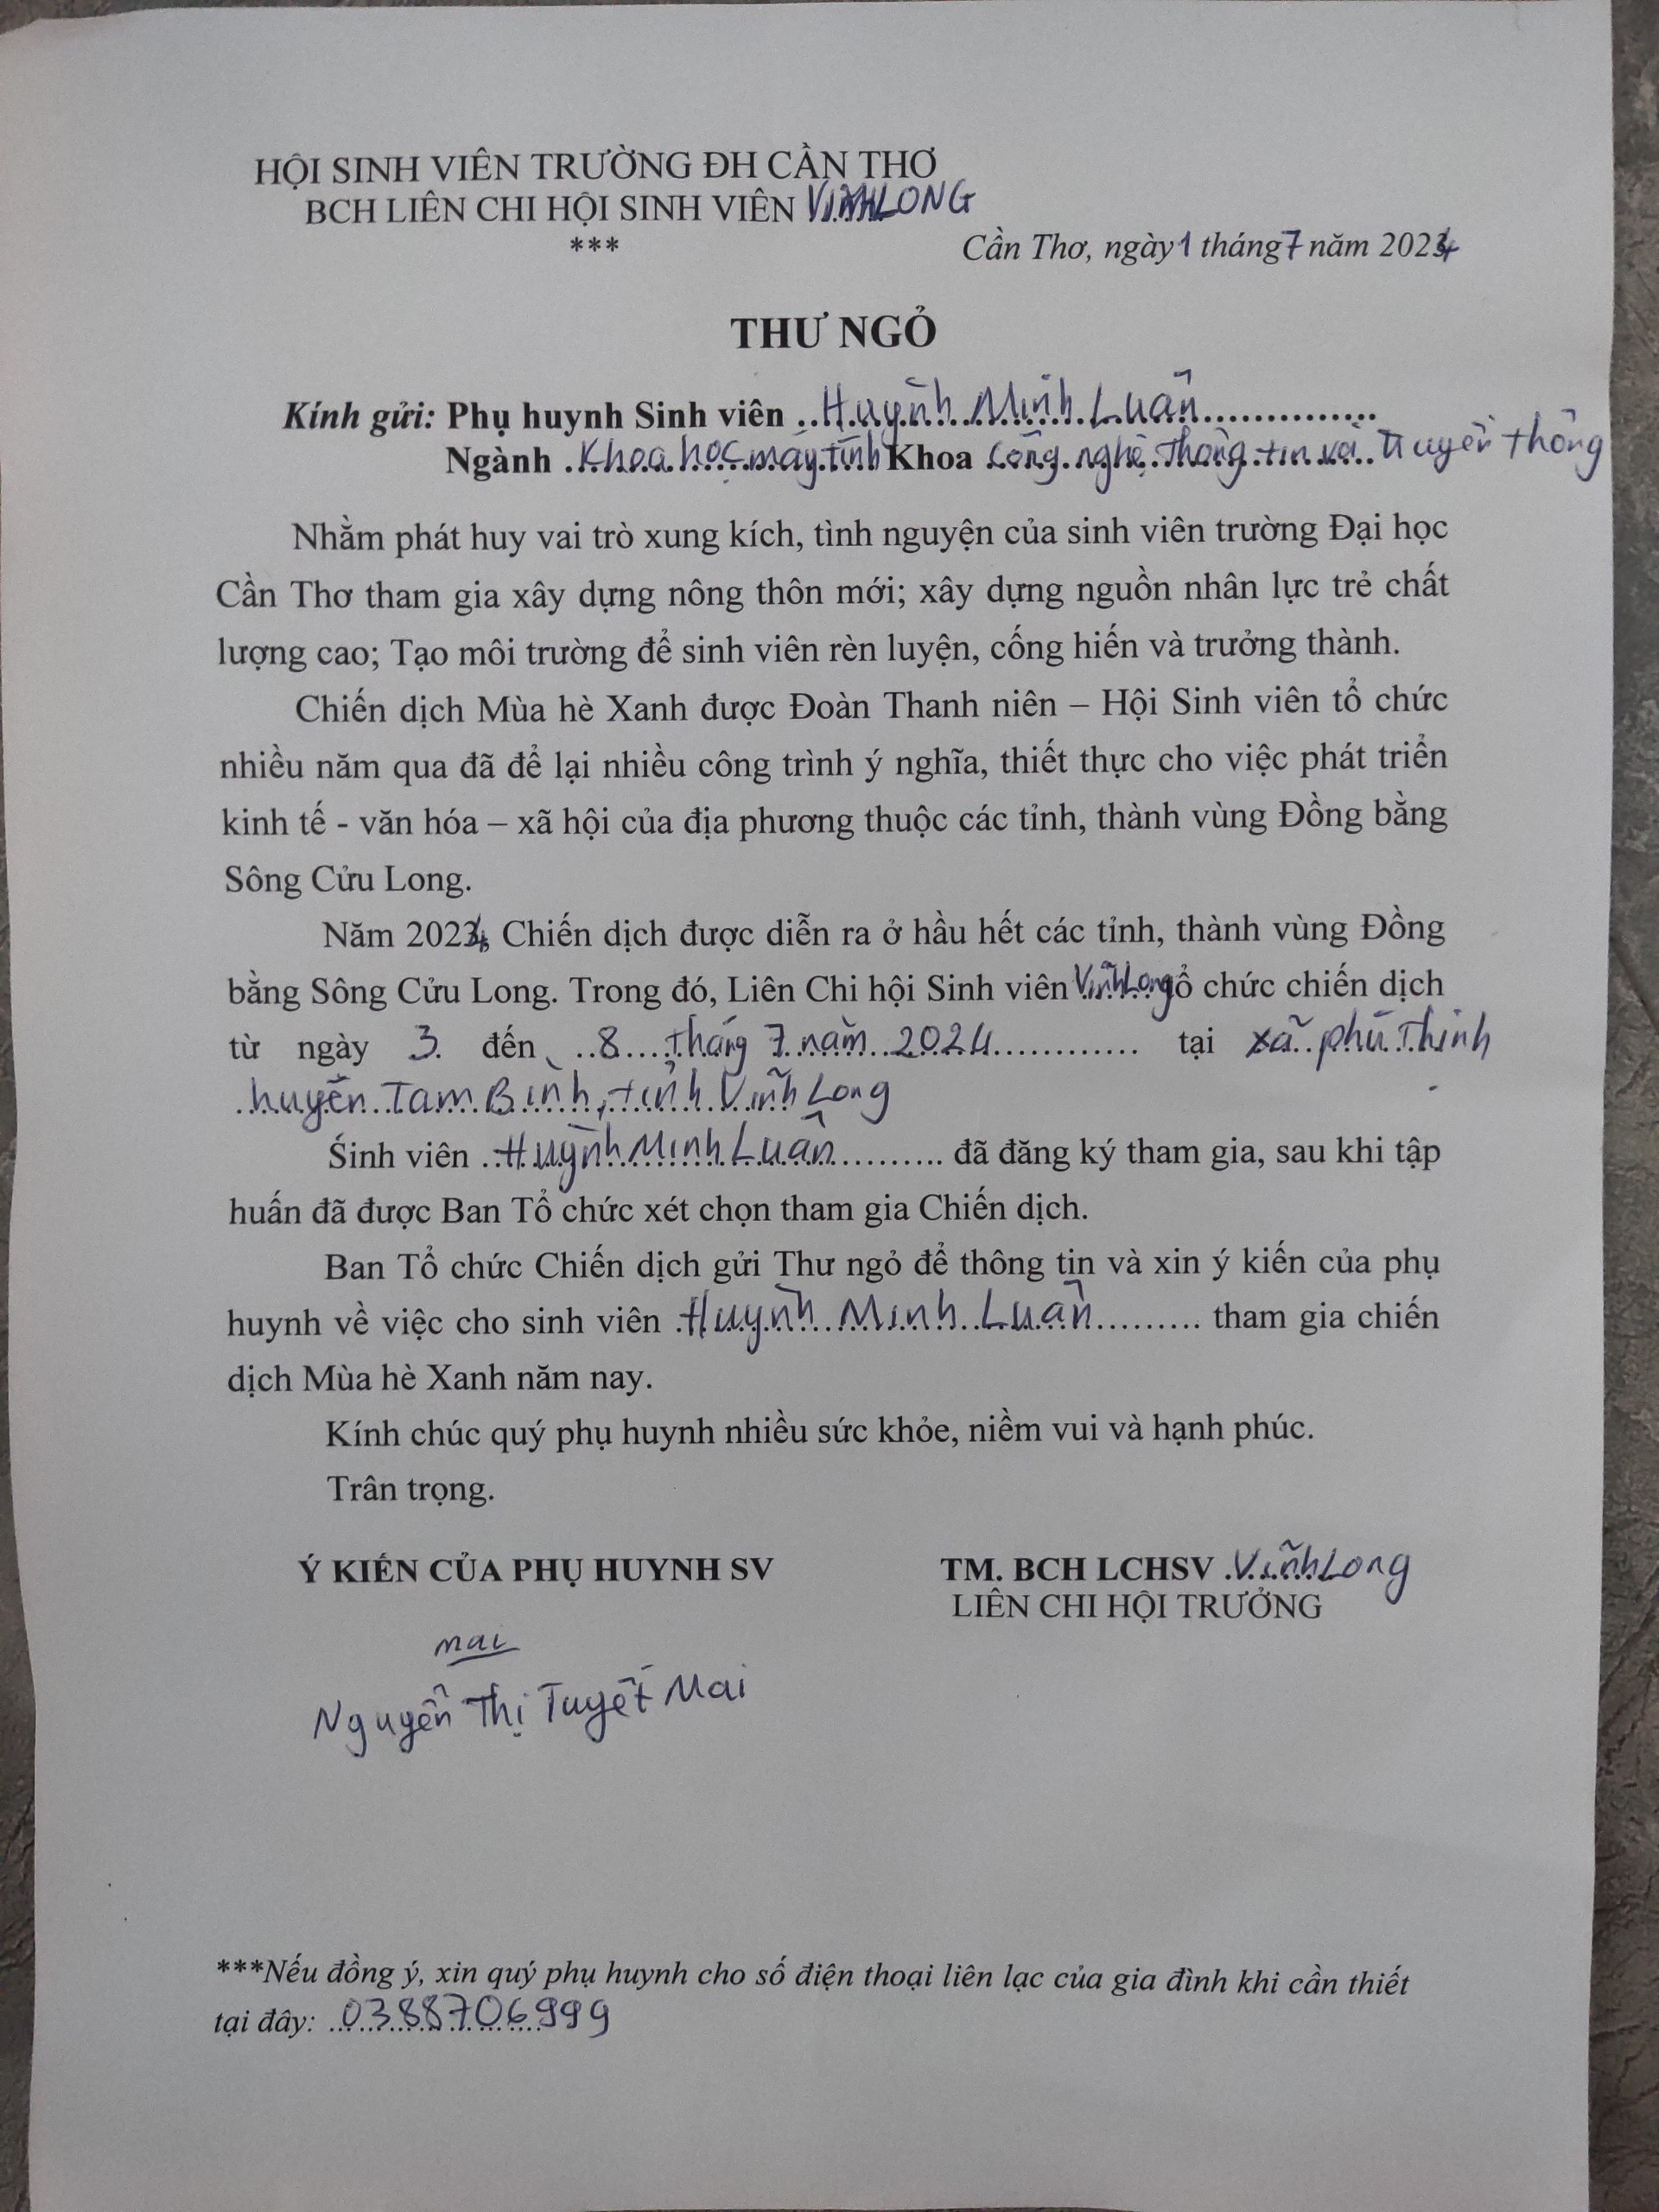 HỘI SINH VIÊN TRƯỜNG ĐH CẦN THƠ
BCH LIÊN CHI HỘI SINH VIÊN VĨNH LONG
***
Cần Thơ, ngày 1 tháng 7 năm 2024
THƯ NGỎ
Kính gửi: Phụ huynh Sinh viên ..Huỳnh Minh Luân..............
Ngành .Khoa học máy tính Khoa Công nghệ Thông tin và Truyền thông
Nhằm phát huy vai trò xung kích, tình nguyện của sinh viên trường Đại học
Cần Thơ tham gia xây dựng nông thôn mới; xây dựng nguồn nhân lực trẻ chất
lượng cao; Tạo môi trường để sinh viên rèn luyện, cống hiến và trưởng thành.
Chiến dịch Mùa hè Xanh được Đoàn Thanh niên – Hội Sinh viên tổ chức
nhiều năm qua đã để lại nhiều công trình ý nghĩa, thiết thực cho việc phát triển
kinh tế - văn hóa – xã hội của địa phương thuộc các tỉnh, thành vùng Đồng bằng
Sông Cửu Long.
Năm 2024, Chiến dịch được diễn ra ở hầu hết các tỉnh, thành vùng Đồng
bằng Sông Cửu Long. Trong đó, Liên Chi hội Sinh viên Vĩnh Long tổ chức chiến dịch
từ ngày 3 đến ..8....tháng 7 năm 2024............ tại xã phú Thịnh
huyện Tam Bình, tỉnh Vĩnh Long
Sinh viên ..Huỳnh Minh Luân.......... đã đăng ký tham gia, sau khi tập
huấn đã được Ban Tổ chức xét chọn tham gia Chiến dịch.
Ban Tổ chức Chiến dịch gửi Thư ngỏ để thông tin và xin ý kiến của phụ
huynh về việc cho sinh viên .Huỳnh Minh Luân......... tham gia chiến
dịch Mùa hè Xanh năm nay.
Kính chúc quý phụ huynh nhiều sức khỏe, niềm vui và hạnh phúc.
Trân trọng.
Ý KIẾN CỦA PHỤ HUYNH SV
TM. BCH LCHSV Vĩnh Long
LIÊN CHI HỘI TRƯỞNG
mai
Nguyễn Thị Tuyết Mai
***Nếu đồng ý, xin quý phụ huynh cho số điện thoại liên lạc của gia đình khi cần thiết
tại đây: 0388706999